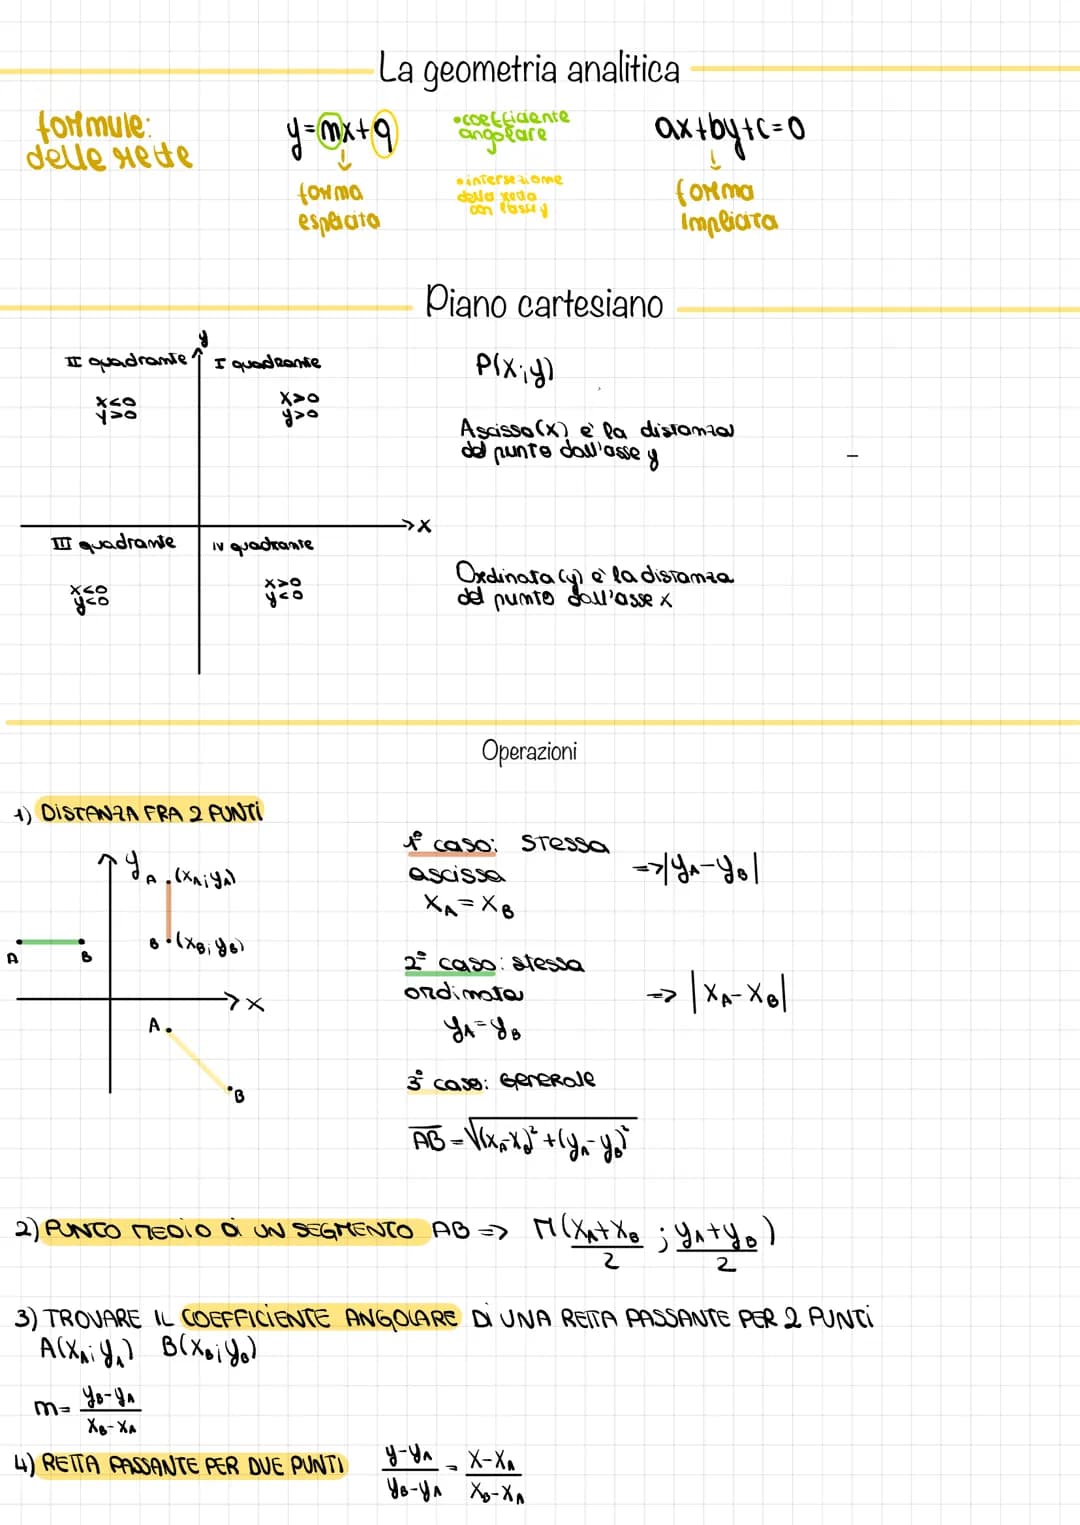 La geometria analitica
formule:
delle rette
y=mx+q
forma
esplicita
•coefficiente
angolare
•intersezione
della retta
con l'asse y
ax+by+c=0
forma
implicita
Piano cartesiano
y
II quadrante
I quadrante
x<0
y>0
x>0
y>0
P(x;y)
Ascissa(x) e' la distanza
del punto dall'asse y
x
III quadrante
IV quadrante
x<0
y<0
x>0
y<0
Ordinata (y) e' la distanza
del punto dall'asse x
Operazioni
1) DISTANZA FRA 2 PUNTI
y
A (xA;yA)
B (xB;yB)
A B
x
A
B
1° caso: stessa
ascissa
xA=xB
=>|yA-yB|
2° caso: stessa
ordinata
yA=yB
=> |xA-xB|
3° caso: Generale
AB=√(xA-xB)²+(yA-yB)²
2) PUNTO MEDIO DI UN SEGMENTO AB => M(xA+xB/2 ; yA+yB/2)
3) TROVARE IL COEFFICIENTE ANGOLARE DI UNA RETTA PASSANTE PER 2 PUNTI
A(xA;yA) B(xB;yB)
m= yB-yA/xB-xA
4) RETTA PASSANTE PER DUE PUNTI y-yA/yB-yA = x-xA/xB-xA